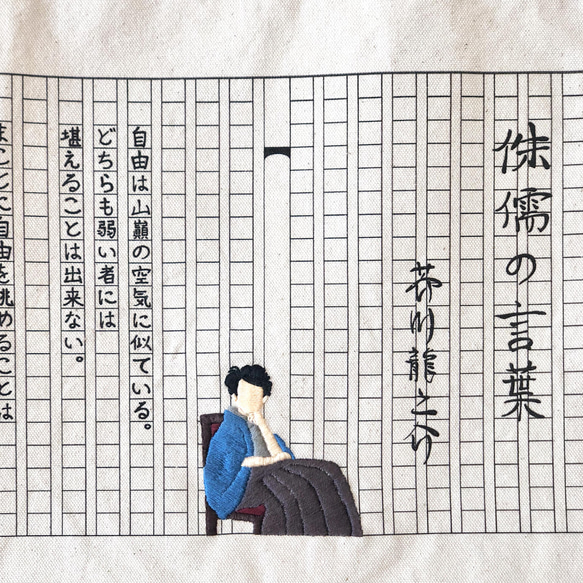 侏儒の言葉
芥川龍之介
自由は山巓の空気に似ている。
どちらも弱い者には
堪えることは出来ない。
まことに自由を眺めることは